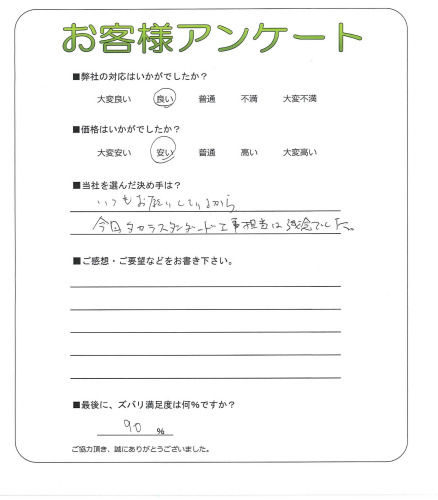 お客様アンケート
■弊社の対応はいかがでしたか？
大変良い 良い 普通 不満 大変不満
■価格はいかがでしたか？
大変安い 安い 普通 高い 大変高い
■当社を選んだ決め手は？
いつもお願いしているから
今回タカラスタンダード工事担当は残念でした。
■ご感想・ご要望などをお書き下さい。
■最後に、ズバリ満足度は何％ですか？
90 %
ご協力頂き、誠にありがとうございました。